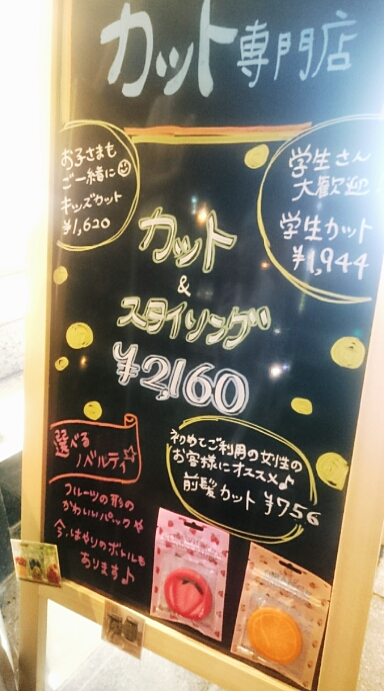 カット専門店
お子さまも
ご一緒に
キッズカット
¥1,620
学生さん
大歓迎
学生カット
¥1,944
カット
&
スタイリング
¥2,160
選べる
ノベルティ☆
フルーツの形の
かわいいパック
今、はやりのボトルも
あります♪
初めてご利用の女性の
お客様にオススメ♪
前髪カット ¥756